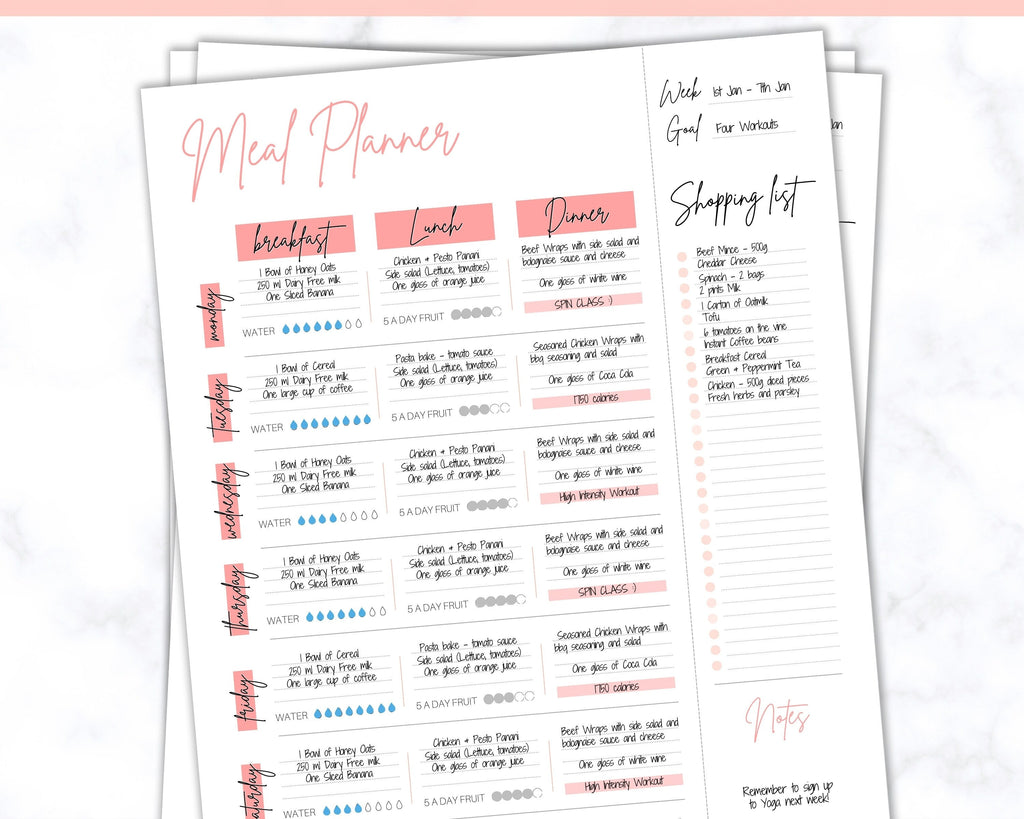 Meal Planner
Week 1st Jan - 7th Jan
Goal Four Workouts
breakfast Lunch Dinner
monday
1 Bowl of Honey Oats
250 ml Dairy Free milk
One Sliced Banana
WATER
Chicken & Pesto Panani
Side salad (Lettuce, tomatoes)
One glass of orange juice
5 A DAY FRUIT
Beef Wraps with side salad and
bolognaise sauce and cheese
One glass of white wine
SPIN CLASS :)
tuesday
1 Bowl of Cereal
250 ml Dairy Free milk
One large cup of coffee
WATER
Pasta bake - tomato sauce
Side salad (Lettuce, tomatoes)
One glass of orange juice
5 A DAY FRUIT
Seasoned Chicken Wraps with
bbq seasoning and salad
One glass of Coca Cola
1750 calories
wednesday
1 Bowl of Honey Oats
250 ml Dairy Free milk
One Sliced Banana
WATER
Chicken & Pesto Panani
Side salad (Lettuce, tomatoes)
One glass of orange juice
5 A DAY FRUIT
Beef Wraps with side salad and
bolognaise sauce and cheese
One glass of white wine
High Intensity Workout
thursday
1 Bowl of Honey Oats
250 ml Dairy Free milk
One Sliced Banana
WATER
Chicken & Pesto Panani
Side salad (Lettuce, tomatoes)
One glass of orange juice
5 A DAY FRUIT
Beef Wraps with side salad and
bolognaise sauce and cheese
One glass of white wine
SPIN CLASS :)
friday
1 Bowl of Cereal
250 ml Dairy Free milk
One large cup of coffee
WATER
Pasta bake - tomato sauce
Side salad (Lettuce, tomatoes)
One glass of orange juice
5 A DAY FRUIT
Seasoned Chicken Wraps with
bbq seasoning and salad
One glass of Coca Cola
1750 calories
aturday
1 Bowl of Honey Oats
250 ml Dairy Free milk
One Sliced Banana
WATER
Chicken & Pesto Panani
Side salad (Lettuce, tomatoes)
One glass of orange juice
5 A DAY FRUIT
Beef Wraps with side salad and
bolognaise sauce and cheese
One glass of white wine
High Intensity Workout
Shopping list
Beef Mince - 500g
Cheddar Cheese
Spinach - 2 bags
2 pints Milk
1 Carton of Oatmilk
Tofu
6 tomatoes on the vine
Instant Coffee beans
Breakfast Cereal
Green & Peppermint Tea
Chicken - 500g diced pieces
Fresh herbs and parsley
Notes
Remember to sign up
to Yoga next week!
an